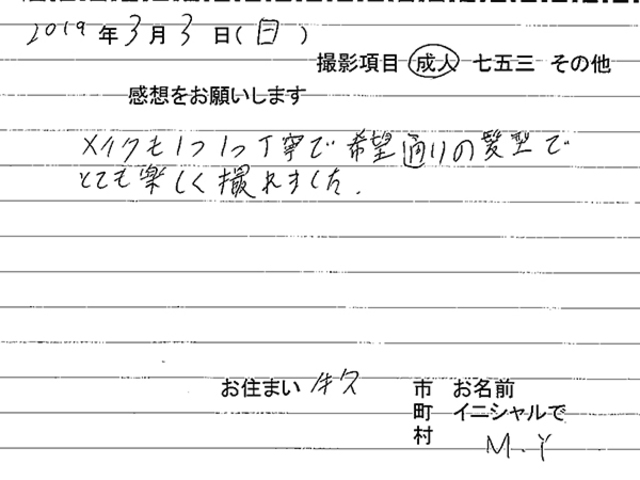 2019年3月3日(日)
撮影項目 成人 七五三 その他
感想をお願いします
メイクも1つ1つ丁寧で希望通りの髪型で
とても楽しく撮れました.
お住まい 牛久 市 お名前
町 イニシャルで
村 M.Y